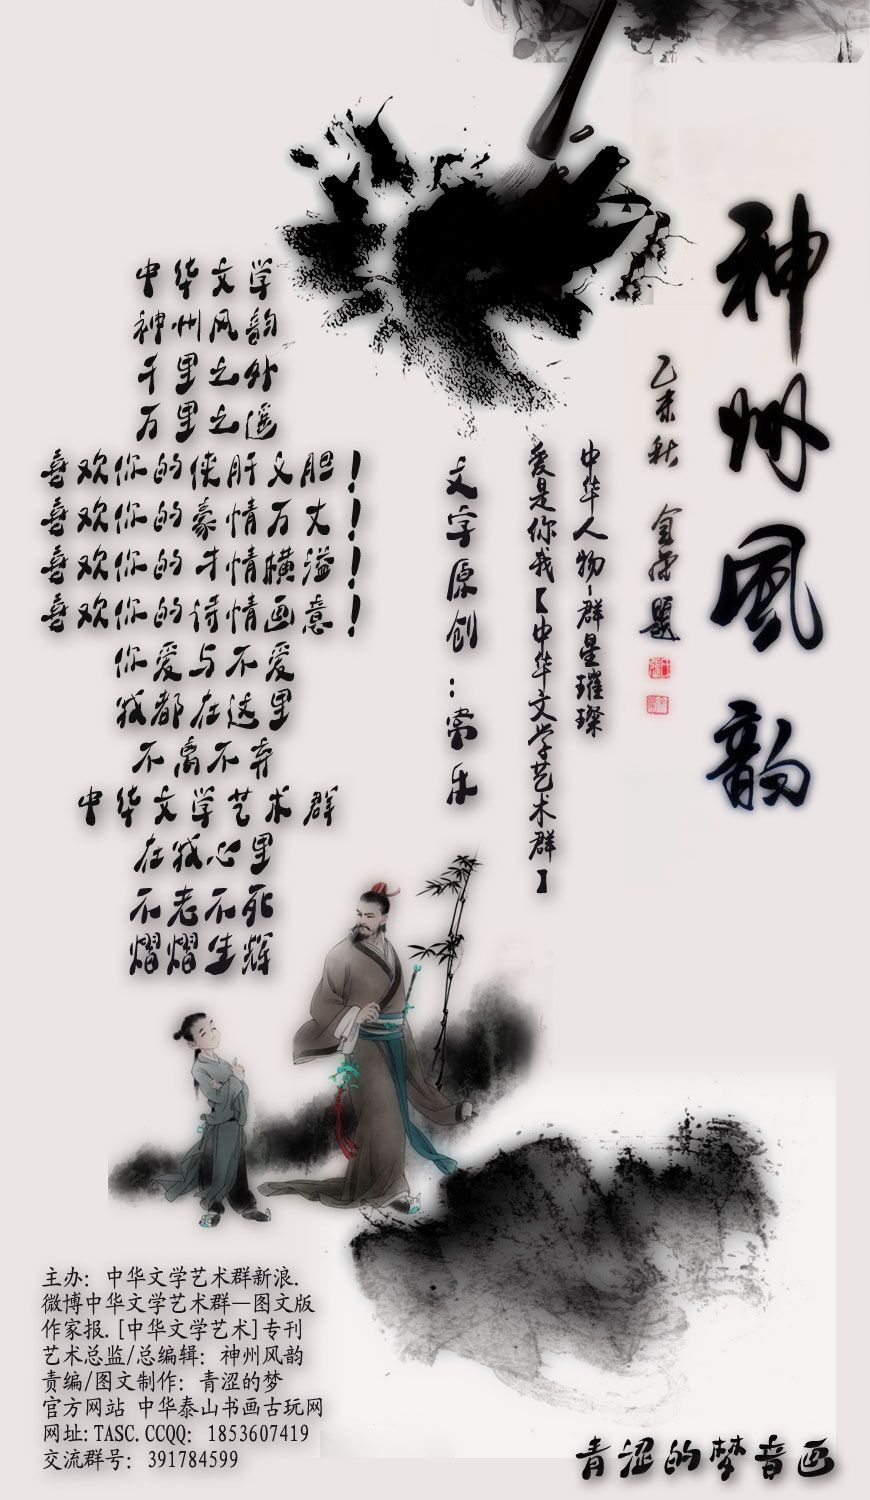 神州風韵
乙未秋 金
题
中华人物-群星璀璨
爱是你我【中华文学艺术群】
文字原创：常乐
中华文学
神州风韵
千里之外
万里之遥
喜欢你的侠肝义胆！
喜欢你的豪情万丈！
喜欢你的才情横溢！
喜欢你的诗情画意！
你爱与不爱
我都在这里
不离不弃
中华文学艺术群
在我心里
不老不死
熠熠生辉
主办：中华文学艺术群新浪.
微博中华文学艺术群—图文版
作家报.[中华文学艺术]专刊
艺术总监/总编辑：神州风韵
责编/图文制作：青涩的梦
官方网站 中华泰山书画古玩网
网址:TASC.CCQQ: 1853607419
交流群号: 391784599
青涩的梦音画